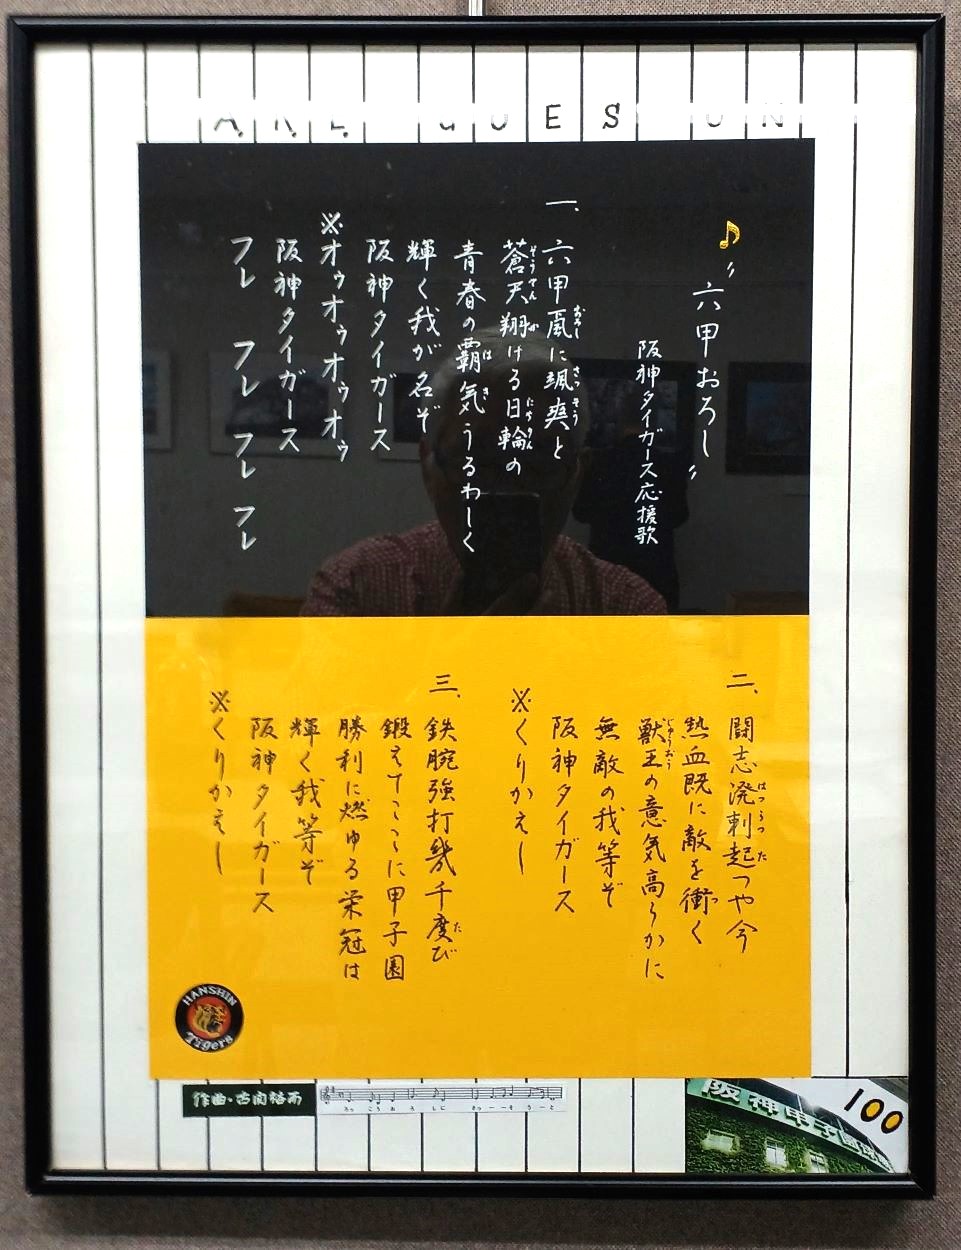 A.R.E. GOES ON
♪〝六甲おろし〟
阪神タイガース応援歌
一、六甲颪に颯爽と
蒼天翔ける日輪の
青春の覇気うるわしく
輝く我が名ぞ
阪神タイガース
※オゥオゥオゥオゥ
阪神タイガース
フレ フレ フレ フレ
二、闘志溌剌起つや今
熱血既に敵を衝く
獣王の意気高らかに
無敵の我等ぞ
阪神タイガース
※くりかえし
三、鉄腕強打幾千度び
鍛えてここに甲子園
勝利に燃ゆる栄冠は
輝く我等ぞ
阪神タイガース
※くりかえし
HANSHIN
Tigers
作曲・古関裕而
ろっこうおろしに さっーーそうーと
阪神甲子園球
100